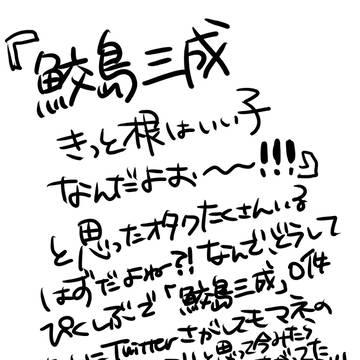 『鮫島三成
きっと根はいい子
なんだよぉ〜!!!』
と思ったオタクたくさんいる
はずだよね?!なんでどうして
ぴくしぶで「鮫島三成」0件
Twitterさがしてモマネの
と思って今みたら